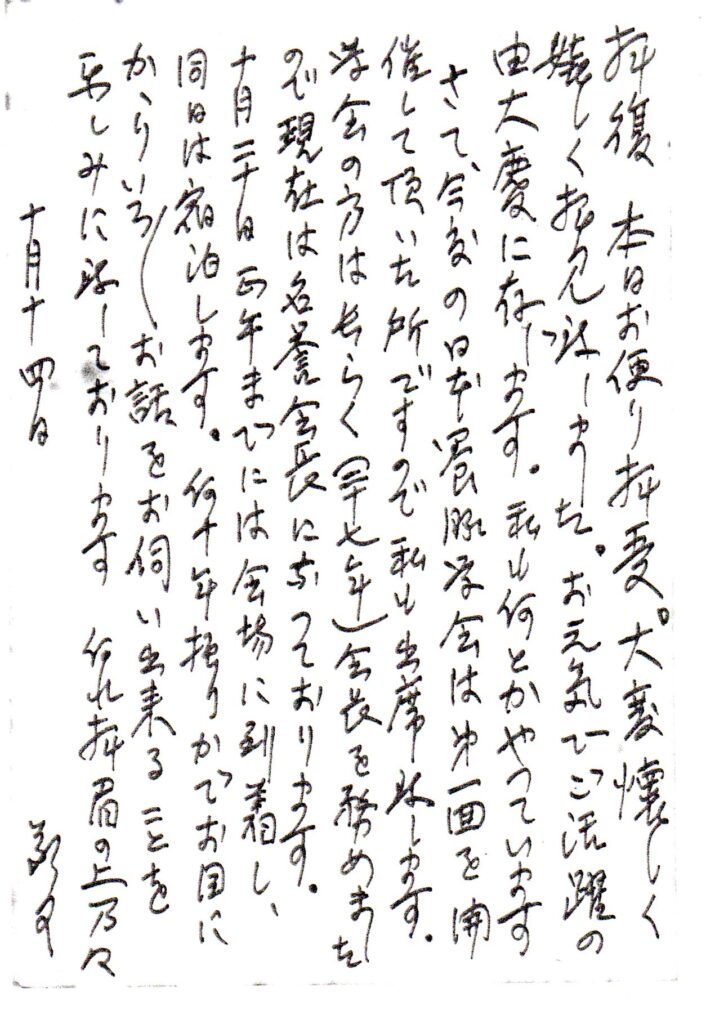 拝復 本日お便り拝受。大変懐しく
嬉しく拝見致しました。お元気でご活躍の
由大慶に存じます。私も何とかやっています
さて、今度の日本養豚学会は第一回を開
催して頂いた所ですので私も出席致します。
学会の方は長らく(二十七年)会長を務めました
ので現在は名誉会長になっております。
十月二十日正午までには会場に到着し、
同日は宿泊します。何十年振りかでお目に
かゝりいろ〳〵お話をお伺い出来ることを
楽しみに致しております 何れ拝眉の上乃々
十月十四日